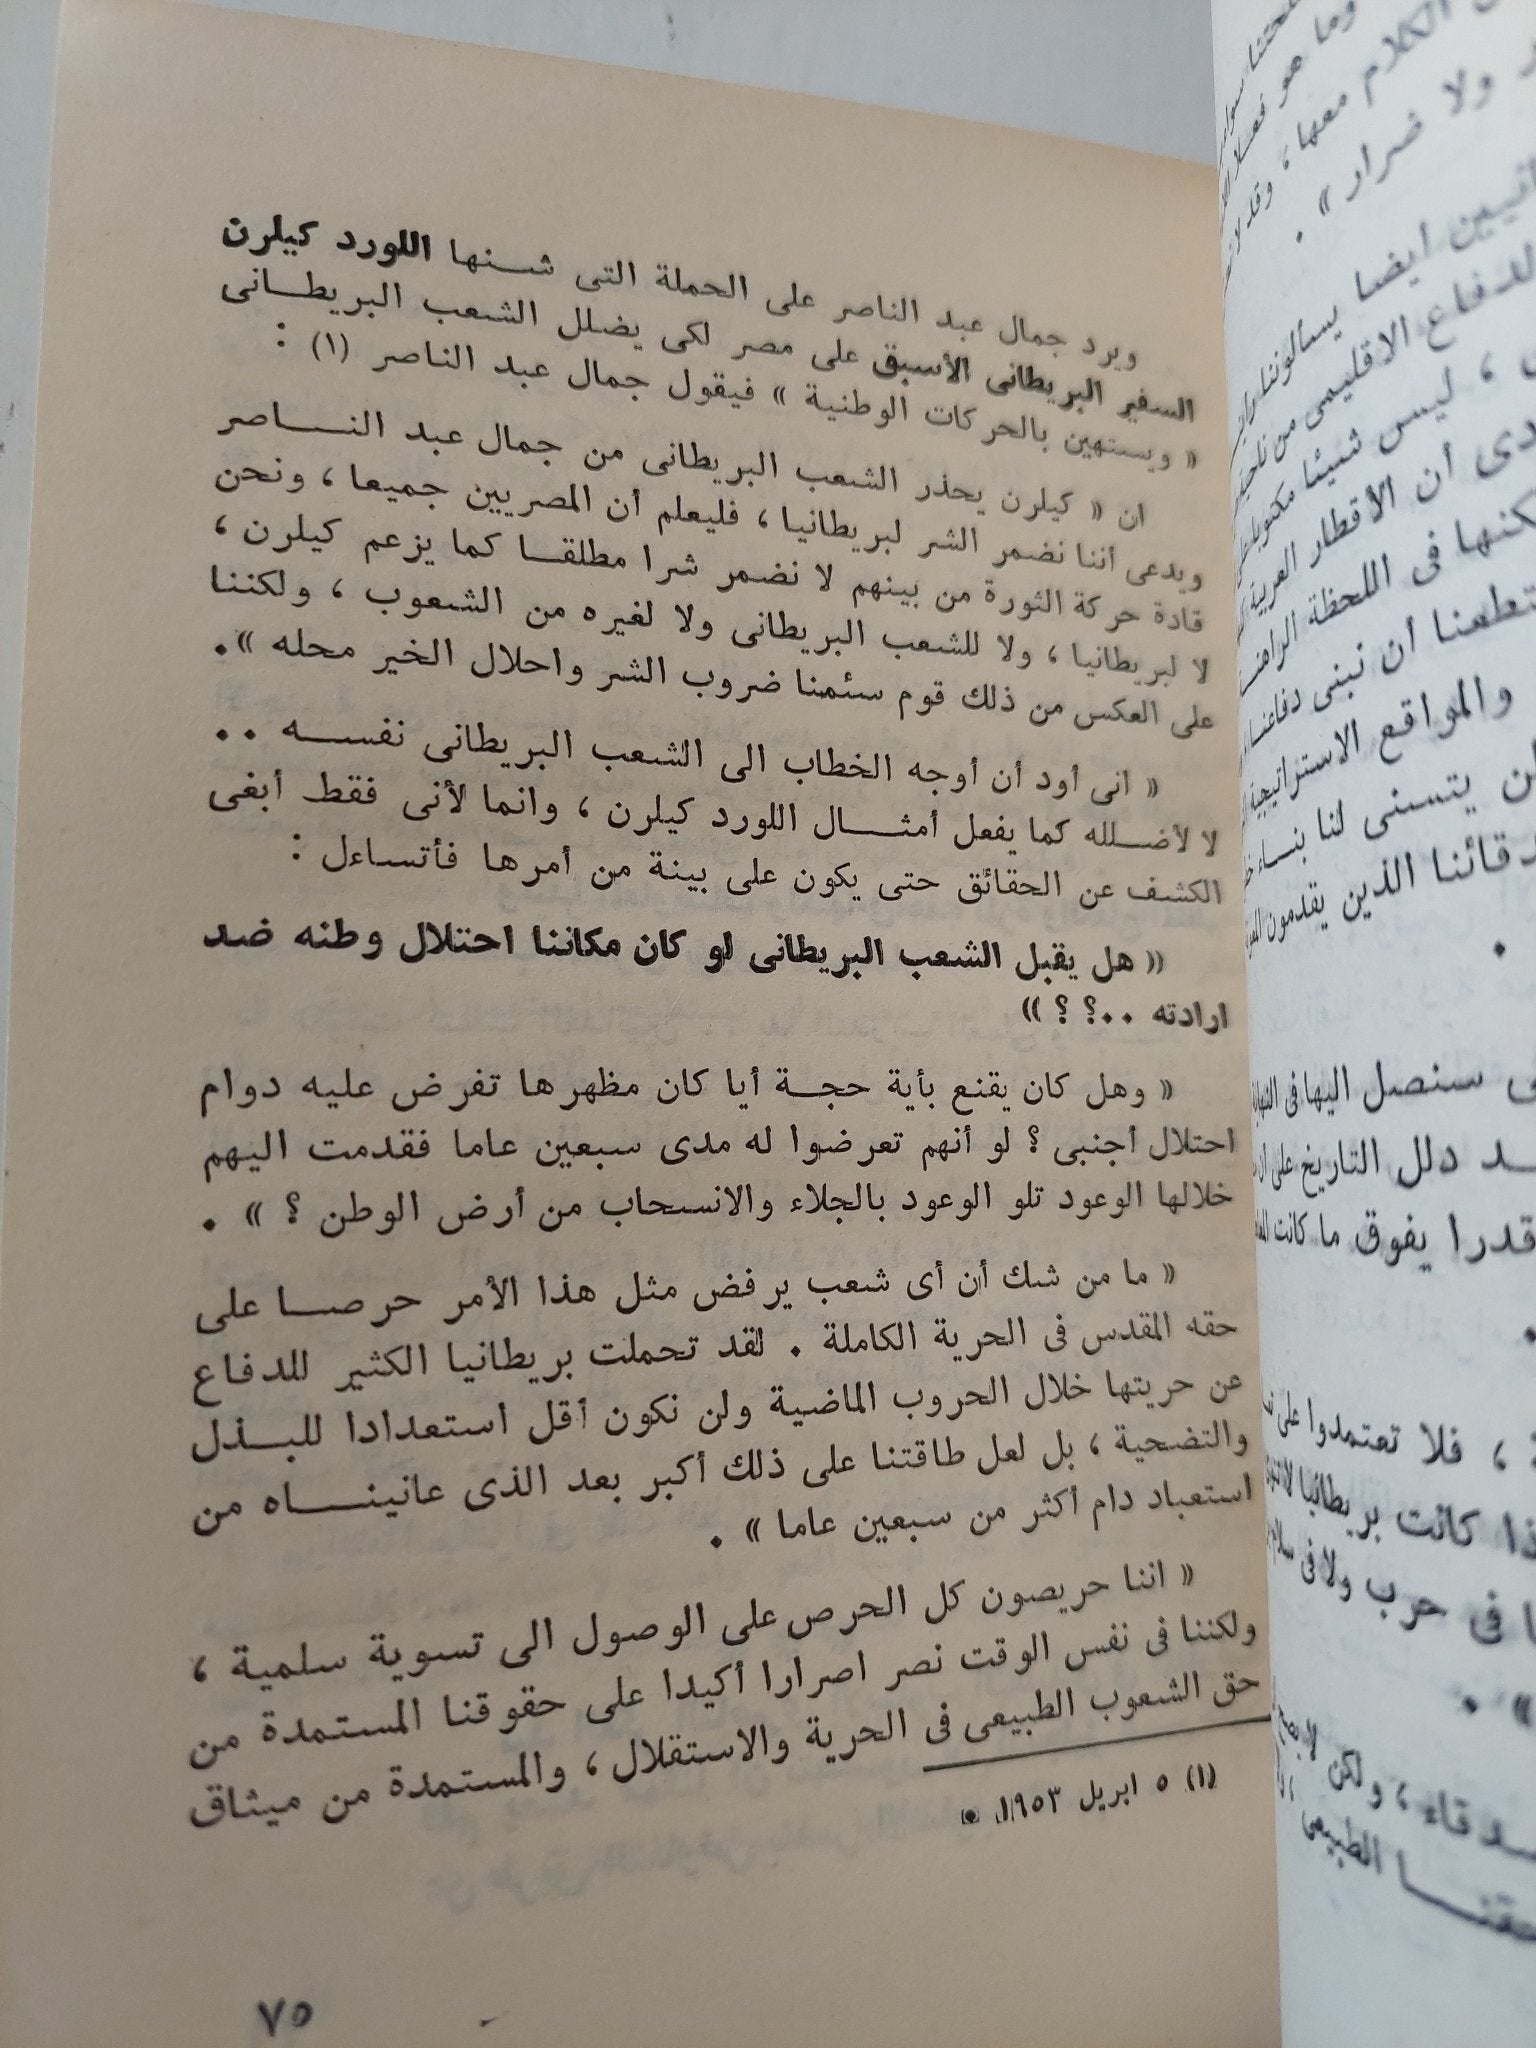 ويرد جمال عبد الناصر على الحملة التى شنها اللورد كيلرن
السفير البريطانى الأسبق على مصر لكى يضلل الشعب البريطانى
« ويستهين بالحركات الوطنية » فيقول جمال عبد الناصر (١) :
ان « كيلرن يحذر الشعب البريطانى من جمال عبد الناصر
ويدعى أننا نضمر الشر لبريطانيا ، فليعلم أن المصريين جميعا ، ونحن
قادة حركة الثورة من بينهم لا نضمر شرا مطلقا كما يزعم كيلرن ،
لا لبريطانيا ، ولا للشعب البريطانى ولا لغيره من الشعوب ، ولكننا
على العكس من ذلك قوم سئمنا ضروب الشر واحلال الخير محله » .
« انى أود أن أوجه الخطاب الى الشعب البريطانى نفسه ..
لا لأضلله كما يفعل أمثال اللورد كيلرن ، وانما لأنى فقط أبغى
الكشف عن الحقائق حتى يكون على بينة من أمرها فأتساءل :
« هل يقبل الشعب البريطانى لو كان مكاننا احتلال وطنه ضد
ارادته ..؟ ؟ »
« وهل كان يقنع بأية حجة أيا كان مظهرها تفرض عليه دوام
احتلال أجنبى ؟ لو أنهم تعرضوا له مدى سبعين عاما فقدمت اليهم
خلالها الوعود تلو الوعود بالجلاء والانسحاب من أرض الوطن ؟ » .
« ما من شك أن أى شعب يرفض مثل هذا الأمر حرصا على
حقه المقدس فى الحرية الكاملة . لقد تحملت بريطانيا الكثير للدفاع
عن حريتها خلال الحروب الماضية ولن نكون أقل استعدادا للبذل
والتضحية ، بل لعل طاقتنا على ذلك أكبر بعد الذى عانيناه من
استعباد دام أكثر من سبعين عاما » .
« اننا حريصون كل الحرص على الوصول الى تسوية سلمية ،
ولكننا فى نفس الوقت نصر اصرارا أكيدا على حقوقنا المستمدة من
حق الشعوب الطبيعى فى الحرية والاستقلال ، والمستمدة من ميثاق
(١) ٥ ابريل ١٩٥٣ .
٧٥
وما هو
الكلام معها ،
ولا ضرار » .
ايضا يسألوننا
للدفاع الاقليمى من
، ليس شيئا
أن الأقطار العربية
فى اللحظة
أن نبنى دفاعنا
والمواقع الاستراتيجية
يتسنى لنا بناء
الذين يقدمون
سنصل اليها فى
دلل التاريخ على
قدرا يفوق ما كانت
، فلا تعتمدوا على
كانت بريطانيا
فى حرب ولا فى
، ولكن
الطبيعى